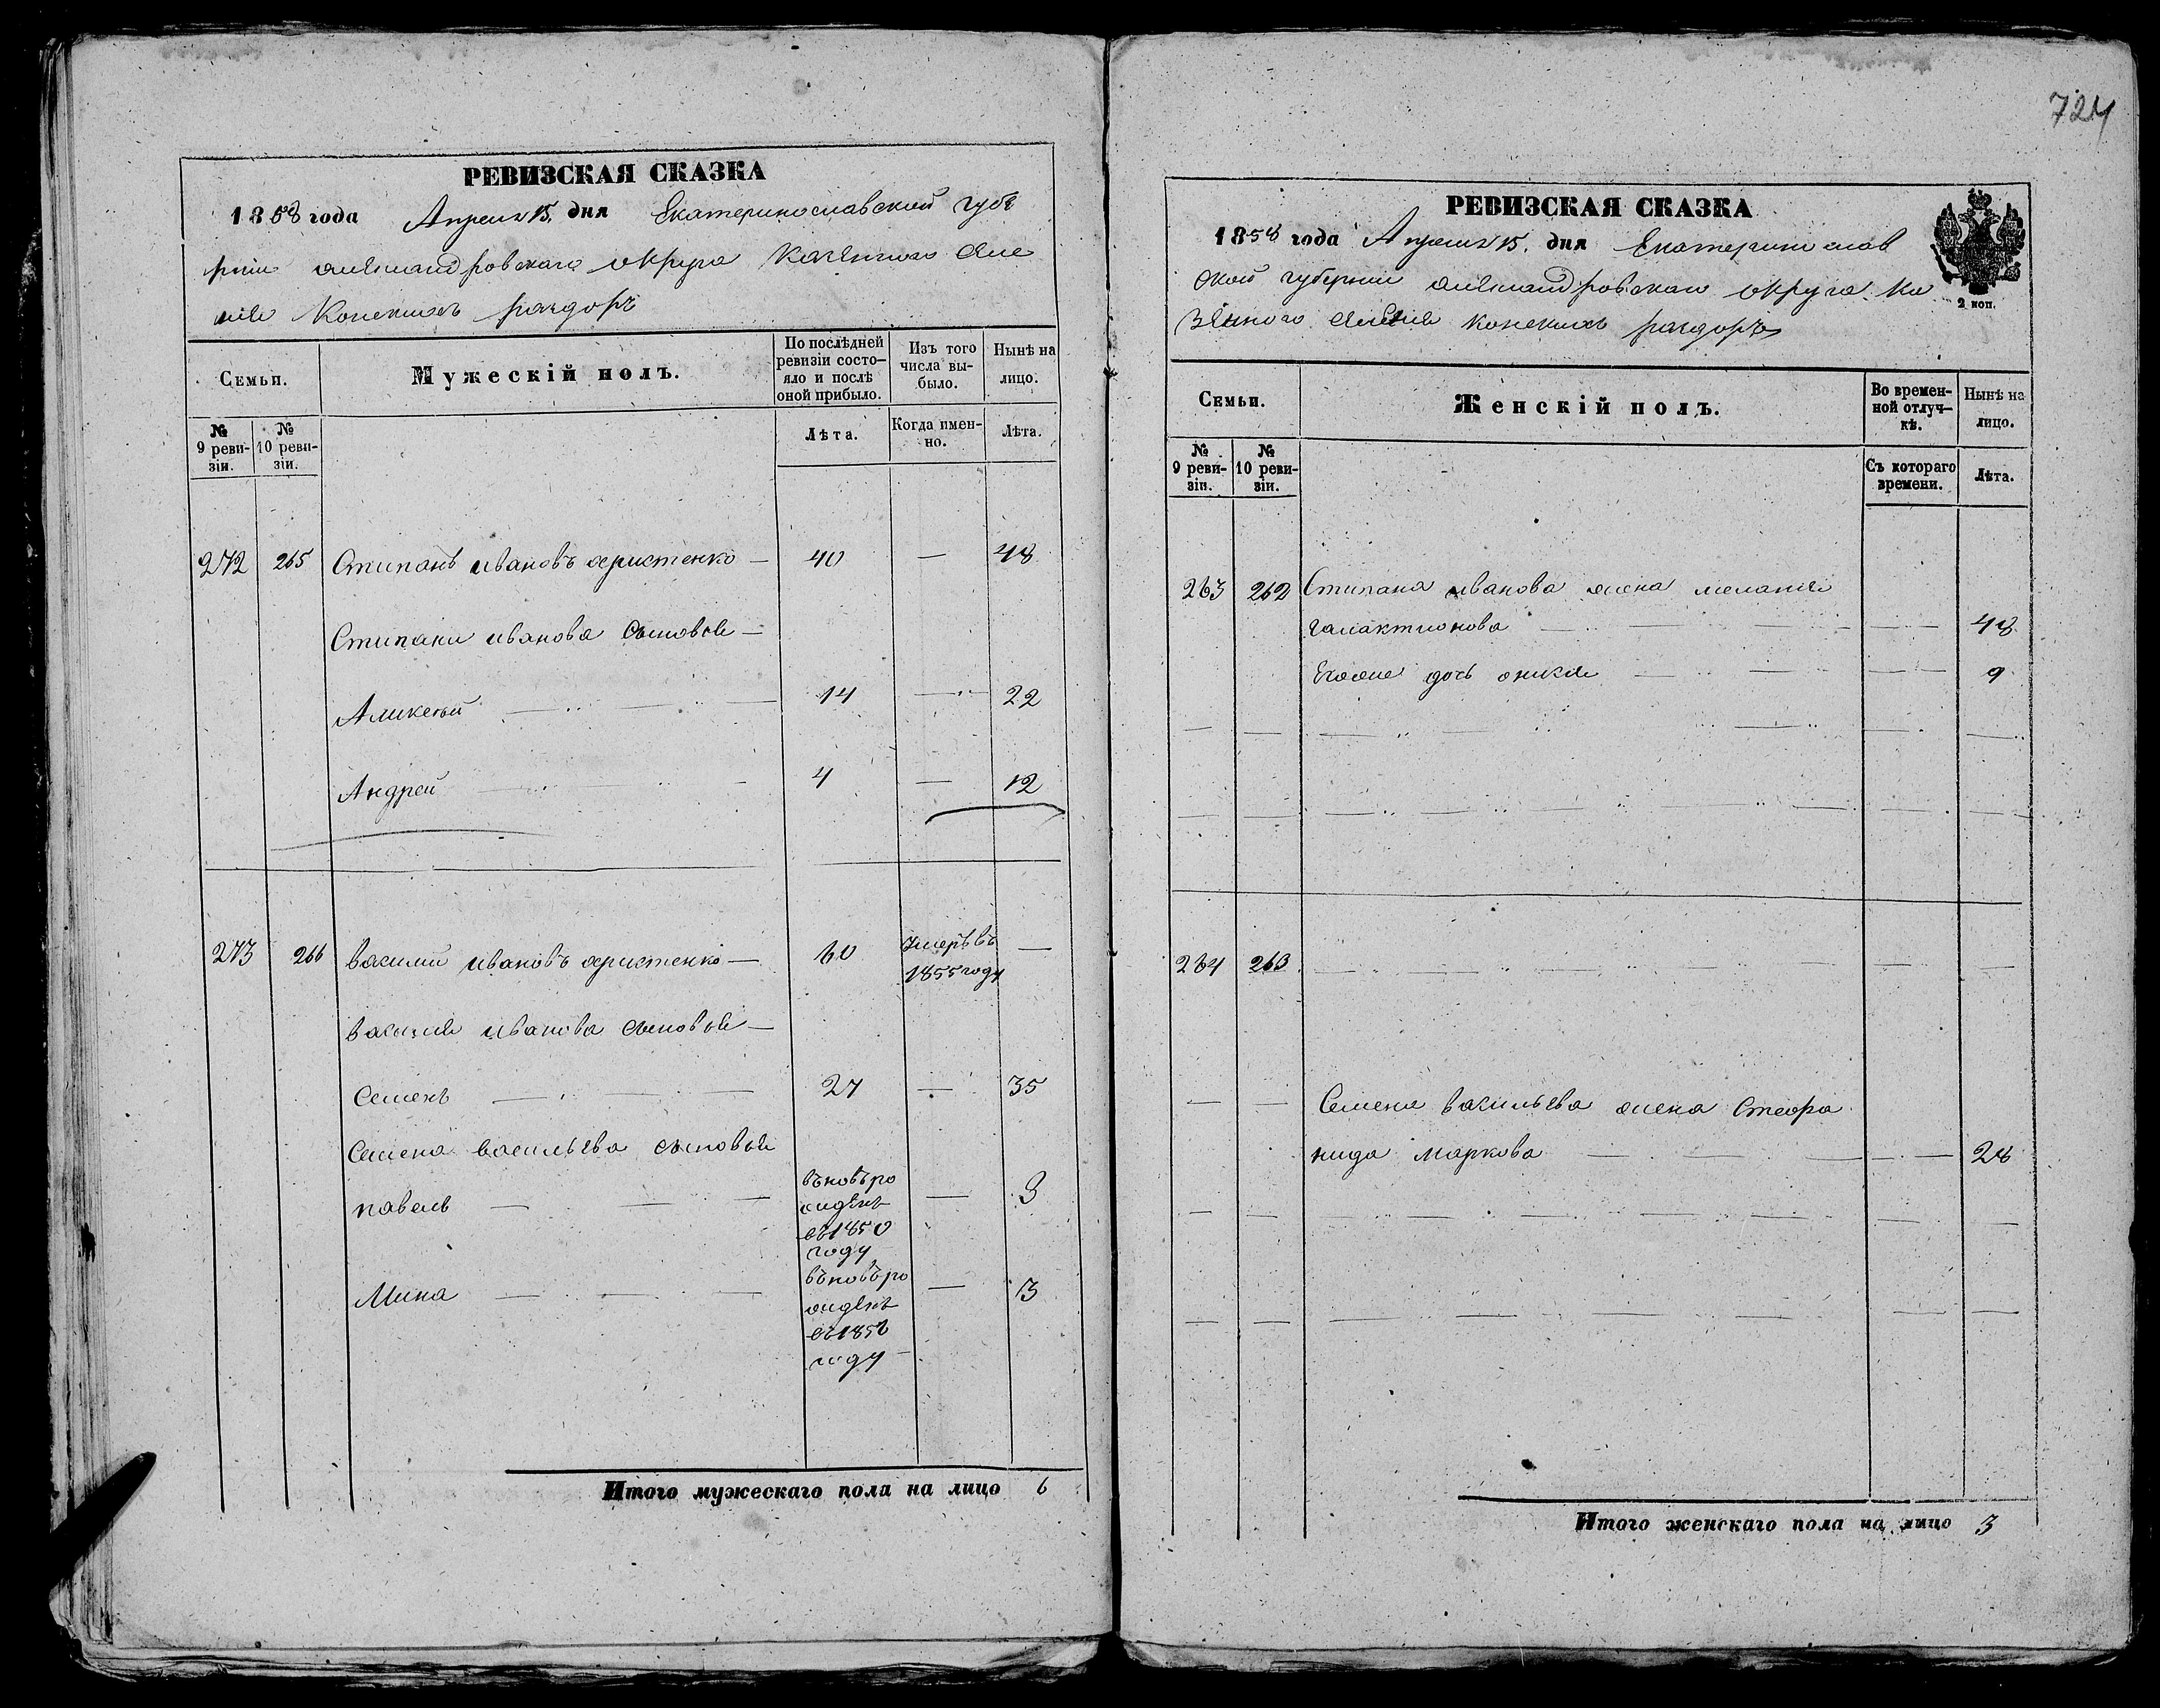 724
РЕВИЗСКАЯ СКАЗКА
1858 года Апреля 15. дня Екатеринославской губе
рніи александровскаго округа казенного селе
нія Конскихъ раздоръ
Семьи.
Мужескій полъ.
По послѣдней ревизіи состо-
яло и послѣ оной прибыло.
Изъ того числа вы-
было.
Нынѣ на лицо.
№ 9 реви-
зіи.
№ 10 реви-
зіи.
Лѣта.
Когда имен-
но.
Лѣта.
272 265 Стипанъ ивановъ христенко — 40 — 48
Стипана иванова сыновья —
Аликсѣй 14 — 22
Андрей 4 — 12
273 266 василий ивановъ христенко — 60 умеръ въ —
1855 году
василия иванова сыновья —
Семенъ 27 — 35
Семена васильева сыновья
павелъ въновъро — 8
жденъ
въ1850
году
Мина въновъро — 3
жденъ
году
Итого мужескаго пола на лицо 6
РЕВИЗСКАЯ СКАЗКА
1858 года Апреля 15. дня Екатеринослав
ской губернии александровскаго округа ка
зенного селения конскихъ раздоръ
2 коп.
Семьи.
Женскій полъ.
Во времен-
ной отлуч-
кѣ.
Нынѣ на лицо.
№ 9 реви-
зіи.
№ 10 реви-
зіи.
Съ котораго времени.
Лѣта.
263 262 Стипана иванова жена мелания
галактионова 48
Егоже дочь 9
264 263
Семена васильева жена Стефа
нида маркова 28
Итого женскаго пола на лицо 3